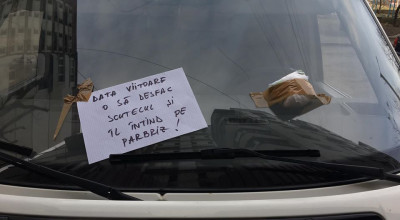 DATA VIITOARE
O SĂ DESFAC
SCUTECUL ȘI
ÎL ÎNTIND PE
PARBRIZ!